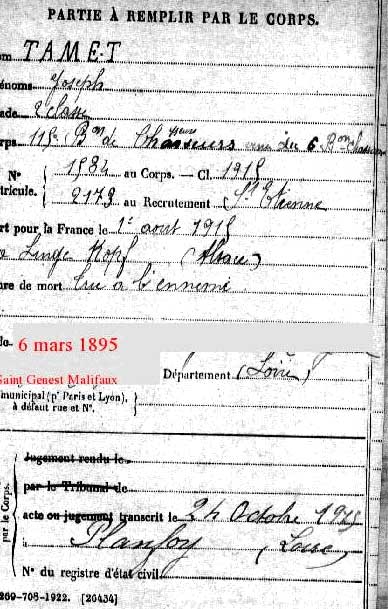 PARTIE À REMPLIR PAR LE CORPS.
om TAMET
énoms Joseph
ade 2 classe
rps 115 Bon de Chasseurs venu du 6 Bon chasseurs
N° 1584 au Corps. — Cl. 1915
tricule. 2173 au Recrutement St Etienne
rt pour la France le 1er aout 1915
a Linge Kopf (Alsace)
nre de mort tué à l'ennemi
le 6 mars 1895
Saint Genest Malifaux
Département (Loire)
municipal (pr Paris et Lyon),
à défaut rue et N°.
par le Corps.
Jugement rendu le
par le Tribunal de
acte ou jugement transcrit le 24 Octobre 1915
à Planfoy (Loire)
N° du registre d'état civil
269-708-1922. [26434]